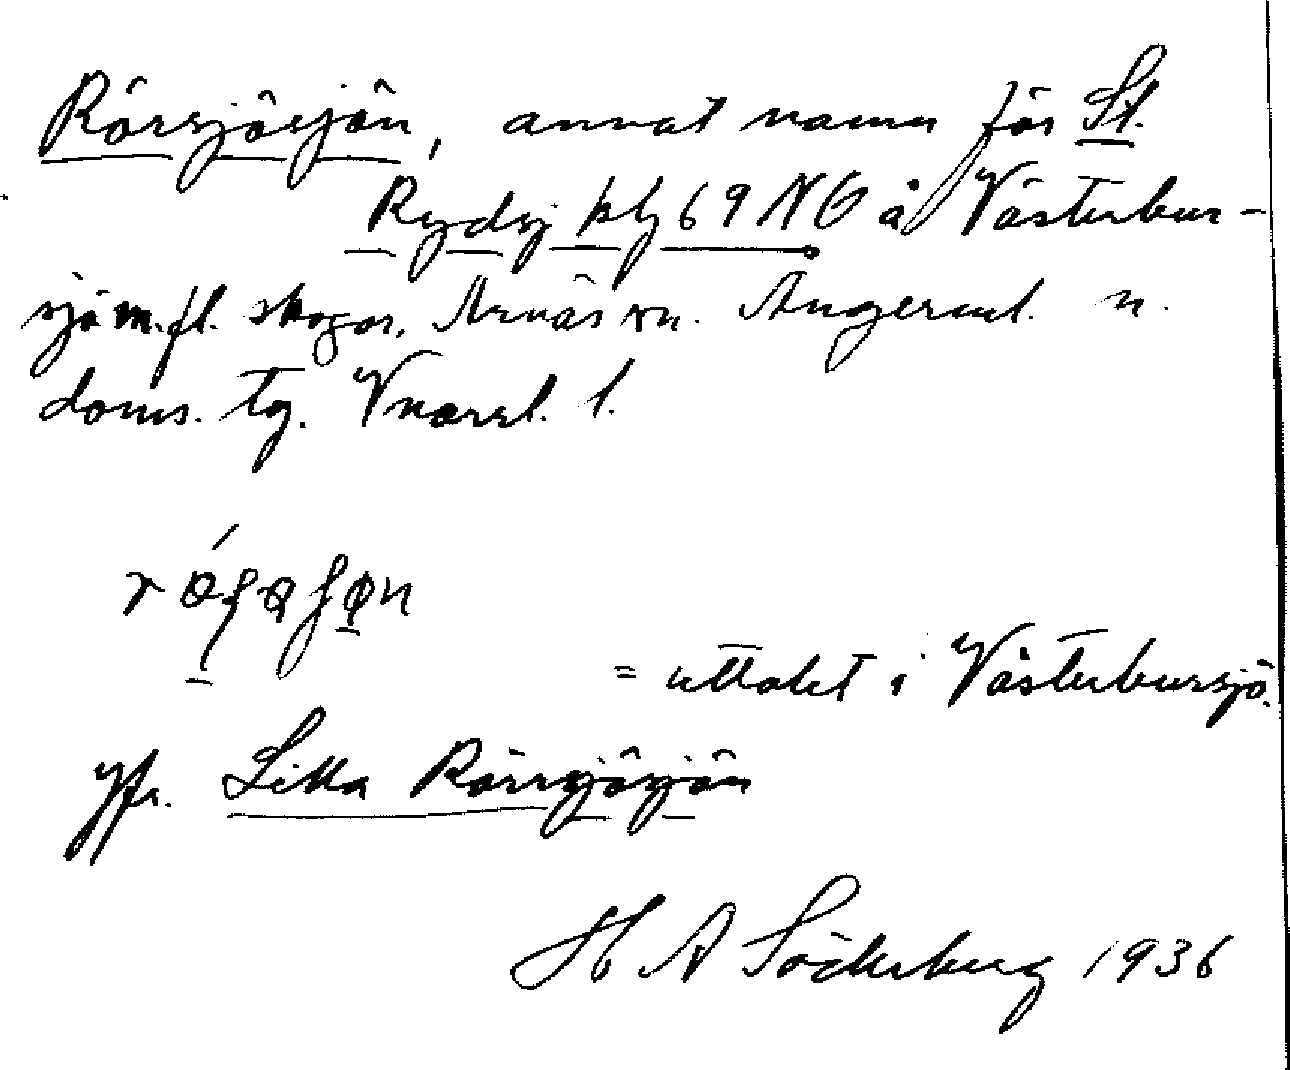 Rörsjösjön, annat namn för St.
Rydsj bl 69 NO å Västerbur-
sjö m.fl. skogar, Arnäs sn. Ångerml. n.
doms. tg. Vnorrl. l.
= uttalet i Västerbursjö.
Jfr. Lilla Rörsjösjön
H A Söderberg 1936